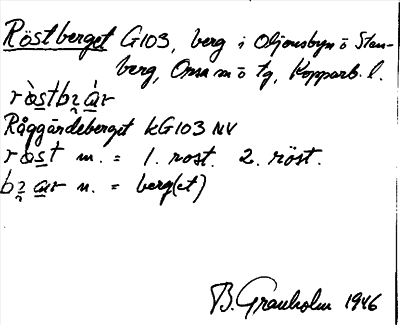 Röstberget G103, berg i Oljonsbyn ö Sten-
berg, Orsa m ö tg, Kopparb. l.
ròstbæ̀r
Råggärdeberget kG103 NV
ròst m. = 1. rost. 2. röst.
n. = berg(et)
B. Granholm 1946